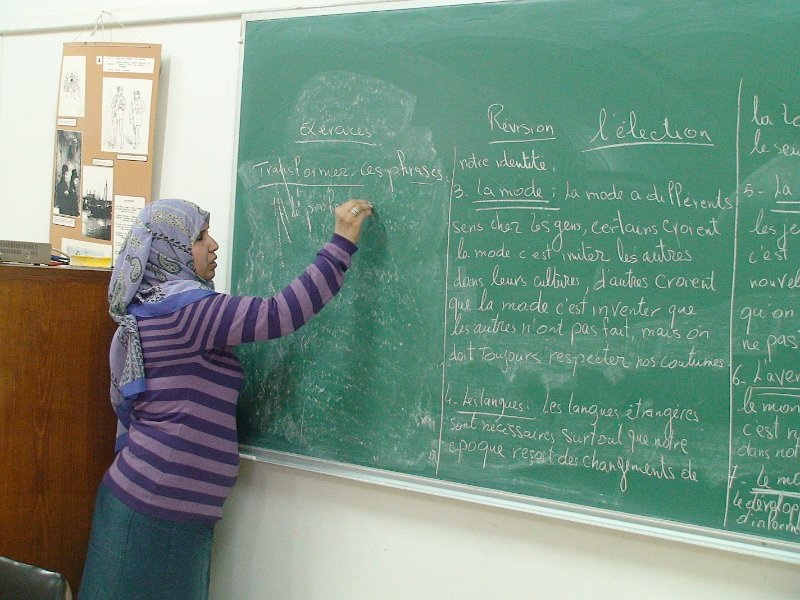 Exercices
Transformer ces phrases.
1) le prof
Révision
l'élection
notre identité.
3. La mode : la mode a différents
sens chez les gens, certains croient
la mode c'est imiter les autres
dans leurs cultures, d'autres croient
que la mode c'est inventer que
les autres n'ont pas fait, mais on
doit toujours respecter nos coutumes
4- Les langues : les langues étrangères
sont nécessaires surtout que notre
epoque reçoit des changements de
le seu
5- La
les je
c'est
nouvel
qu'on
ne pas
6- L'aven
le mon
c'est n
dans not
7- le mo
le développ
d'inform